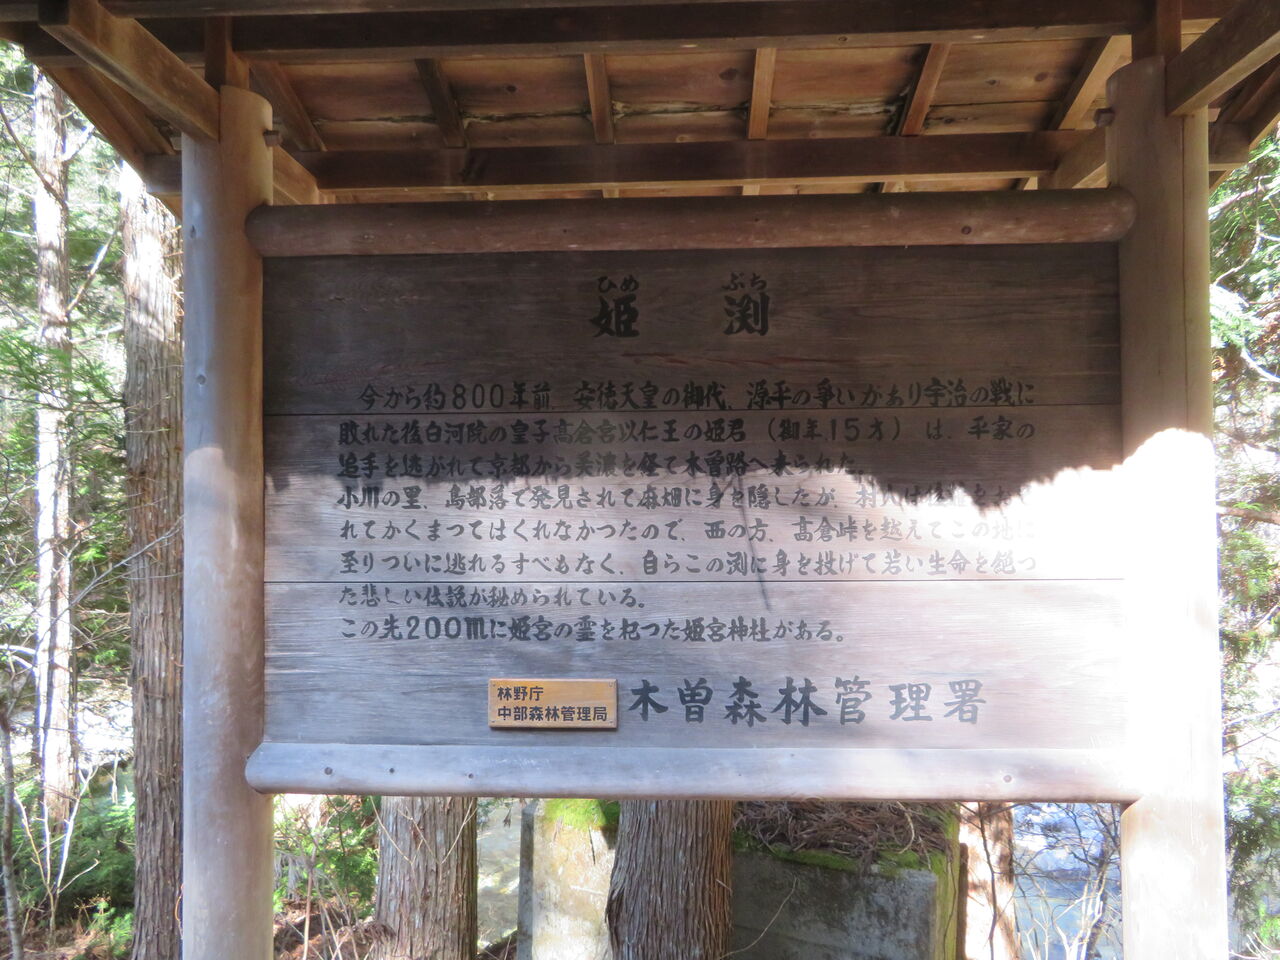 ひめ ぶち
姫 渕
今から約800年前、安徳天皇の御代、源平の争いがあり宇治の戦に
敗れた後白河院の皇子高倉宮以仁王の姫君(御年15才)は、平家の
追手を逃がれて京都から美濃を経て木曽路へ来られた。
小川の里、島部落で発見されて麻畑に身を隠したが、村人は後
れてかくまつてはくれなかつたので、西の方、高倉峠を越えてこの地に
至りついに逃れるすべもなく、自らこの渕に身を投げて若い生命を絶つ
た悲しい伝説が秘められている。
この先200mに姫宮の霊を祀つた姫宮神社がある。
林野庁
中部森林管理局
木曽森林管理署